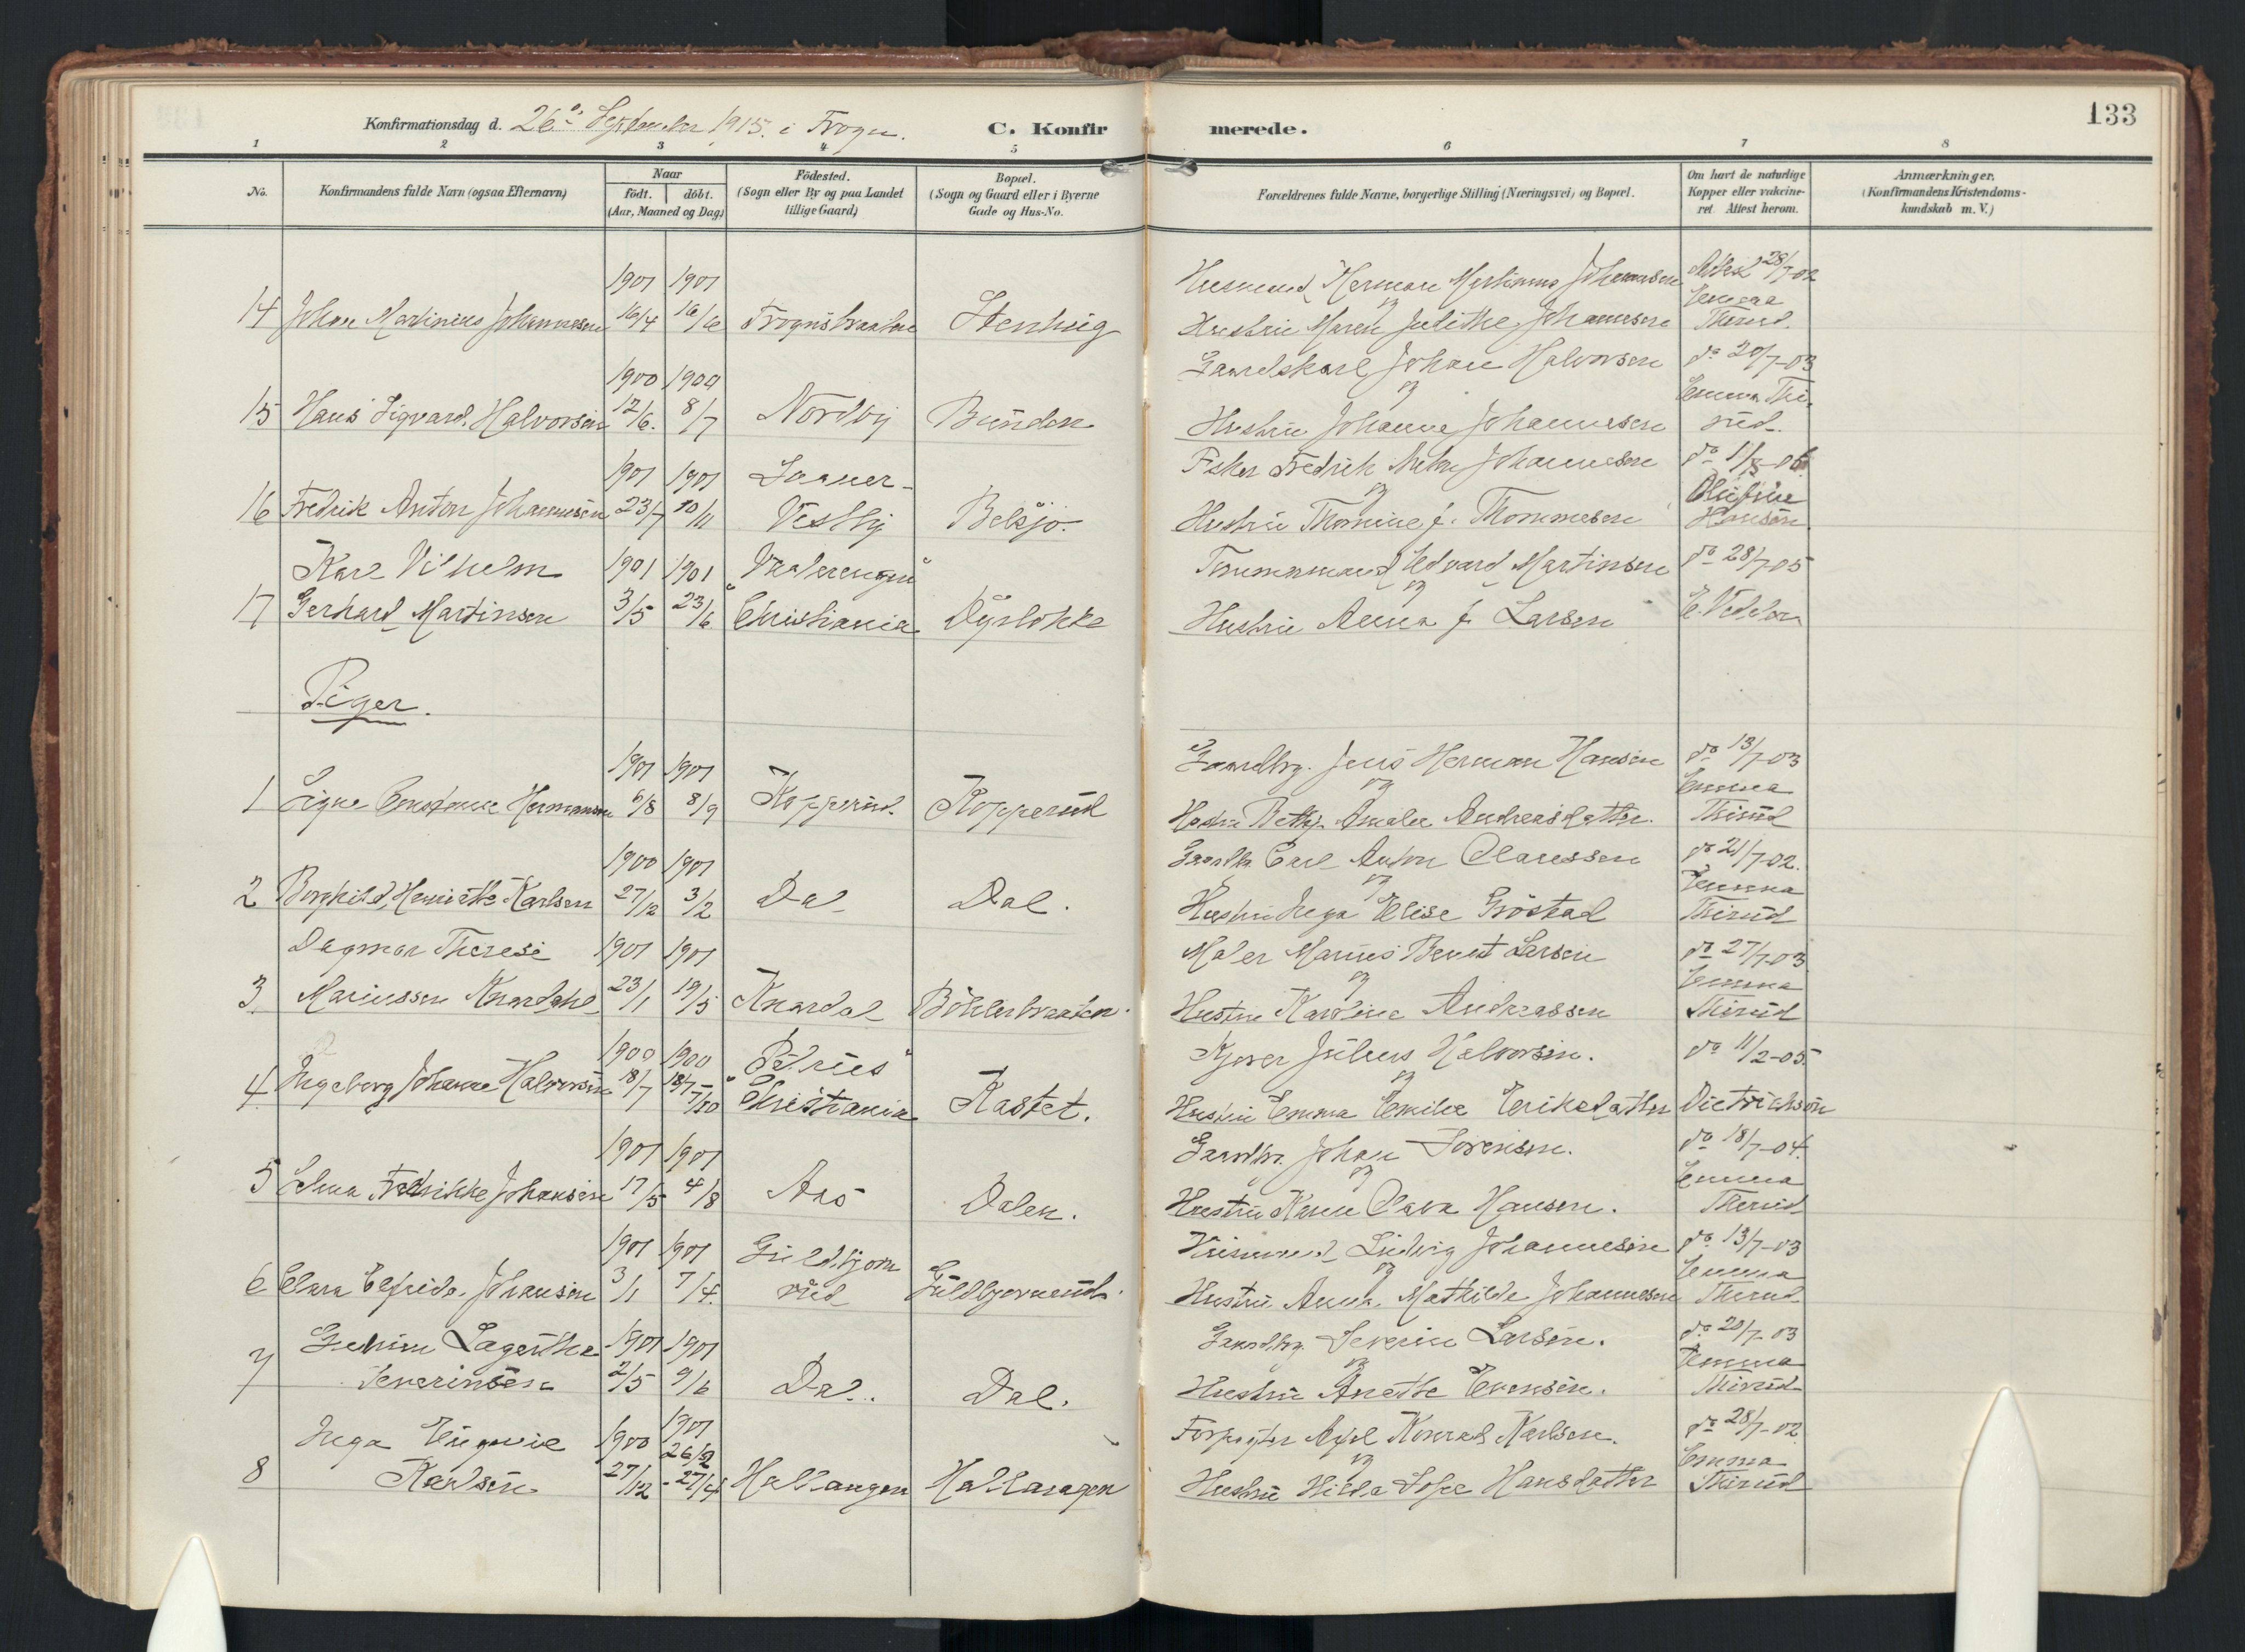 133
Konfirmationsdag d. 26de September 1915. i Frogn.
C. Konfirmerede.
1 2 3 4 5 6 7 8
No.
Konfirmandens fulde Navn (ogsaa Efternavn)
Naar
födt. döbt.
(Aar, Maaned og Dag)
Födested.
(Sogn eller By og paa Landet
tillige Gaard)
Bopæl.
(Sogn og Gaard eller i Byerne
Gade og Hus-No.
Forældrenes fulde Navne, borgerlige Stilling (Næringsvei) og Bopæl.
Om havt de naturlige
Kopper eller vakcine-
ret. Attest herom.
Anmærkninger.
(Konfirmandens Kristendoms-
kundskab m. V.)
1901 1901 Husmand Herman Martinius Johannesen Attest 28/7-02
14 Johan Martinius Johannesen 16/4 16/6 Frognsbraaten Stenhug og Emma
Hustru Maren Julithe Johannesen Thirud.
1900 1900 Gaardskarl Johan Halvorsen do 20/7-03
15 Hans Sigvard Halvorsen 12/6. 8/7 Nordby Bunden og Emma Thi-
Hustru Johanne Johannesen rud.
1901 1901 Fisker Fredrik Johannesen do 11/8-06
16 Fredrik Anton Johannesen 23/7 10/11 Vestby Belsjö og Olufine
Hustru Thomine f. Thommesen Hansen
Karl Vilhelm 1901 1901 Vaalerengen Tømmermand Edvard Martinsen do 28/7-05
17 Gerhard Martinsen 3/5 23/6 Christiania Dyrløkke og
Hustru Anna f. Larsen
Piger.
1901 1901 Gaardbr. Jens Herman Hansen do 13/7-03
1 Signe Constance Hermansen 6/8 8/9 Kopperud. Kopperud og Emma
Hustru Betty Amalie Andreasdatter. Thirud
1900 1901 Gaardbr. Carl Anton Olaussen do 21/7-02.
2 Borghild Henriette Karlsen 27/12 3/2 Dal Dal. og Emma
Hustru Inga Elise Gröstad Thirud
Dagmar Therese 1901 1901 Maler Marius Bernt Larsen do 27/7-03
3 Mariussen Knardahl 23/1 19/5 Knardal Böhlerbraaten. og Emma
Hustru Karoline Andreassen Thirud
1900 1900 Petrus Kjører Julius Halvorsen. do 11/2-05.
4 Ingeborg Johanne Halvorsen 18/7 Christiania Kastet. og
Hustru Emma Emilie Eriksdatter Dietrichson
1901 1901 Gaardbr. Johan Sørensen. do 18/7-04.
5 Selma Fredrikke Johansen 17/5 4/8 Aas Dalen. og Emma
Hustru Karen Olava Hansen. Thirud
1901 1901 Guldbjørn Husmand Ludvig Johannesen do 13/7-03
6 Clara Elfrida Johansen 3/1 7/4. rud Guldbjørnrud. og Emma
Hustru Anna Mathilde Johannesen Thirud
Gudrun Lagertha 1901 1901 Gaardbr. Severin Larsen. do 20/7-03
7 Severinsen 2/5 9/6 Dal. Dal. og Emma
Hustru Anette Evensen. Thirud
Inga 1900 1901 Forpagter Axel Konrad Karlsen. do 28/7-02
8 Karlsen 27/12 26/2 - 27/4 Hallangen Hallangen og Emma
Hustru Hilda Sofie Hansdatter Thirud